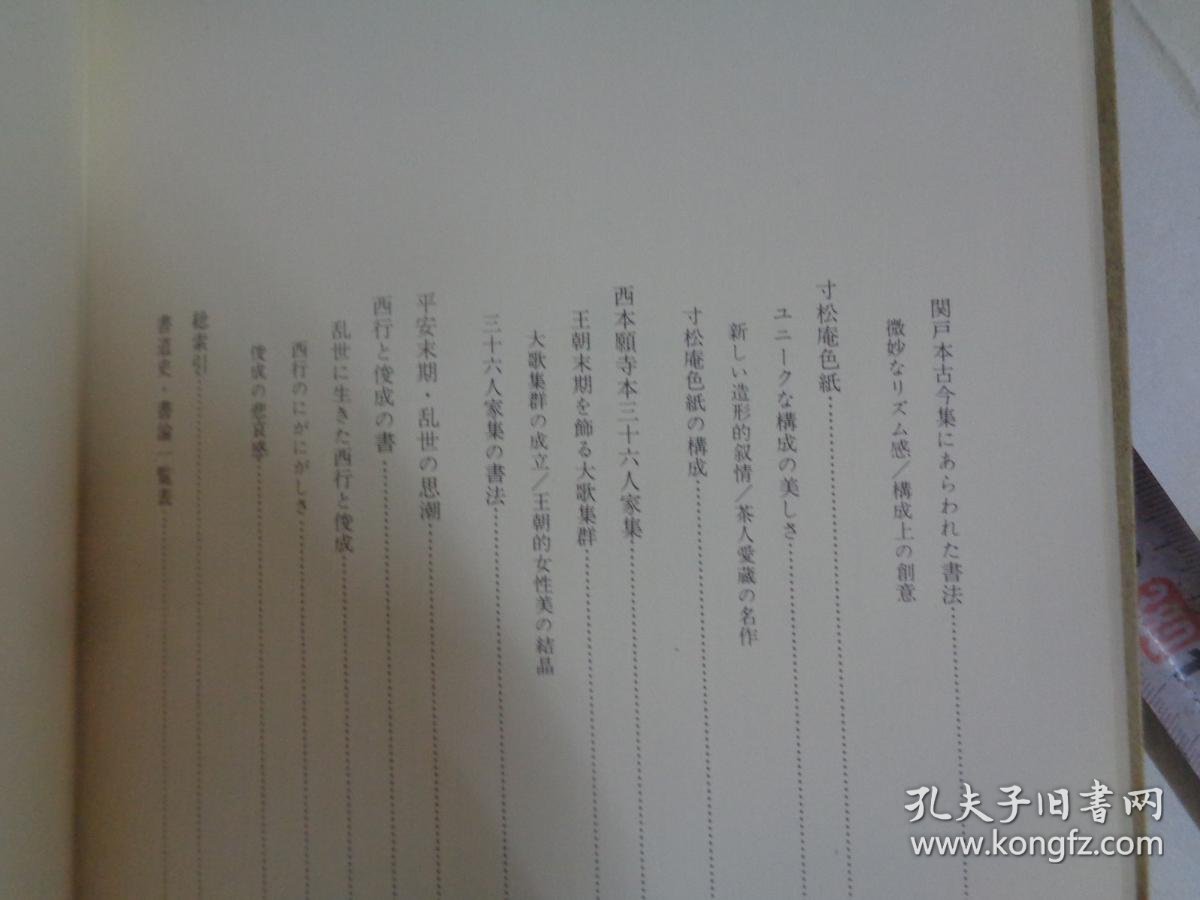 関戸本古今集にあらわれた書法
微妙なリズム感/構成上の創意
寸松庵色紙
ユニークな構成の美しさ
新しい造形的叙情/茶人愛蔵の名作
寸松庵色紙の構成
西本願寺本三十六人家集
王朝末期を飾る大歌集群
大歌集群の成立/王朝的女性美の結晶
三十六人家集の書法
平安末期・乱世の思潮
西行と俊成の書
乱世に生きた西行と俊成
西行のにがにがしさ
俊成の悲哀感
総索引
書道史・書論一覧表
孔夫子旧书网
www.kongfz.com